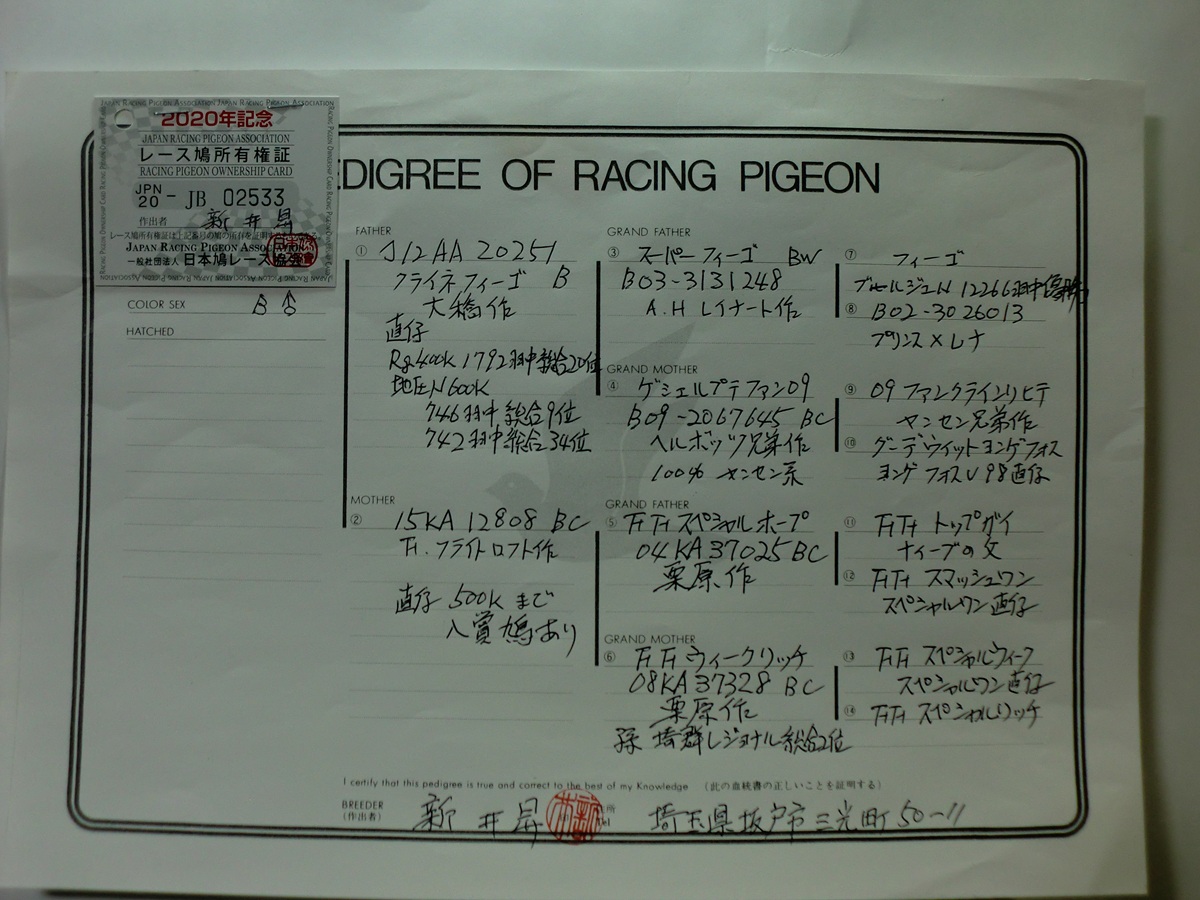 JAPAN RACING PIGEON ASSOCIATION JAPAN RACING PIGEON ASSOCIATION
2020年記念
JAPAN RACING PIGEON ASSOCIATION
レース鳩所有権証
RACING PIGEON OWNERSHIP CARD
JPN
20 - JB 02533
作出者 新井昇
レース鳩所有権証は上記番号の鳩の所有を証明する
JAPAN RACING PIGEON ASSOCIATION
一般社団法人 日本鳩レース協会
EDIGREE OF RACING PIGEON
COLOR SEX B ♂
HATCHED
FATHER
① J12AA 20251
クライネフィーゴ B
大橋作
直仔
Rg400K 1792羽中総合20位
地区N600K
746羽中総合9位
742羽中総合34位
MOTHER
② 15KA 12808 BC
TH.フライトロフト作
直仔 500Kまで
入賞鳩あり
GRAND FATHER
③ スーパーフィーゴ BW
B03-3131248
A.H レイナート作
GRAND MOTHER
④ ゲシェルプテファン09
B09-2067645 BC
ヘルボッツ兄弟作
100% ヤンセン系
GRAND FATHER
⑤ スペシャルホープ
04KA37025 BC
栗原作
GRAND MOTHER
⑥ ウィークリッチ
08KA37328 BC
栗原作
孫 埼群レジョナル総合2位
⑦ フィーゴ
12266羽中優勝
⑧ B02-3026013
プリンス×レナ
⑨ 09 ファンクラインリヒテ
ヤンセン兄弟作
⑩ グーデウィットヨングフォス
ヨングフォスV98直仔
⑪ トップガイ
ナイーブの父
⑫ スマッシュワン
スペシャルワン直仔
⑬ スペシャルウィーク
スペシャルワン直仔
⑭ スペシャルリッチ
I certify that this pedigree is true and correct to the best of my Knowledge (此の血統書の正しいことを証明する)
BREEDER
(作出者) 新井昇 埼玉県坂戸市三光町50-11